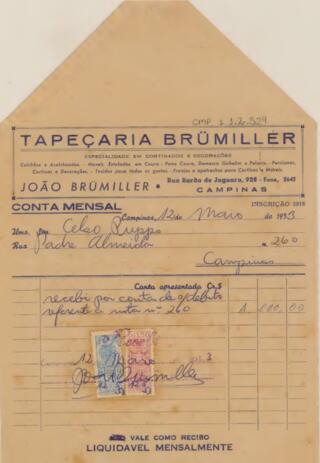 CMP 1.2.929
TAPEÇARIA BRÜMILLER
ESPECIALIDADE EM CORTINADOS E DECORAÇÕES
Colchões e Acolchoados - Moveis Estofados em Couro - Pano Couro, Damasco Gobelim e Palacio - Persianas,
Cortinas e Decorações. - Tecidos para todos os gostos. - Franjas e apetrechos para Cortinas e Moveis.
JOÃO BRÜMILLER • Rua Barão de Jaguara, 928 - Fone, 2645
CAMPINAS
CONTA MENSAL
INSCRIÇÃO 2918
Campinas, 12 de Maio de 1953
Ilmo. Snr. Celso Puppo
Rua Padre Almeida n. 260
Campinas
Conta apresentada Cr.$
recebi por conta de s/debito
referente a nota nº 260 1.000,00
12 Maio 3
João Brümiller
VALE COMO RECIBO
LIQUIDAVEL MENSALMENTE